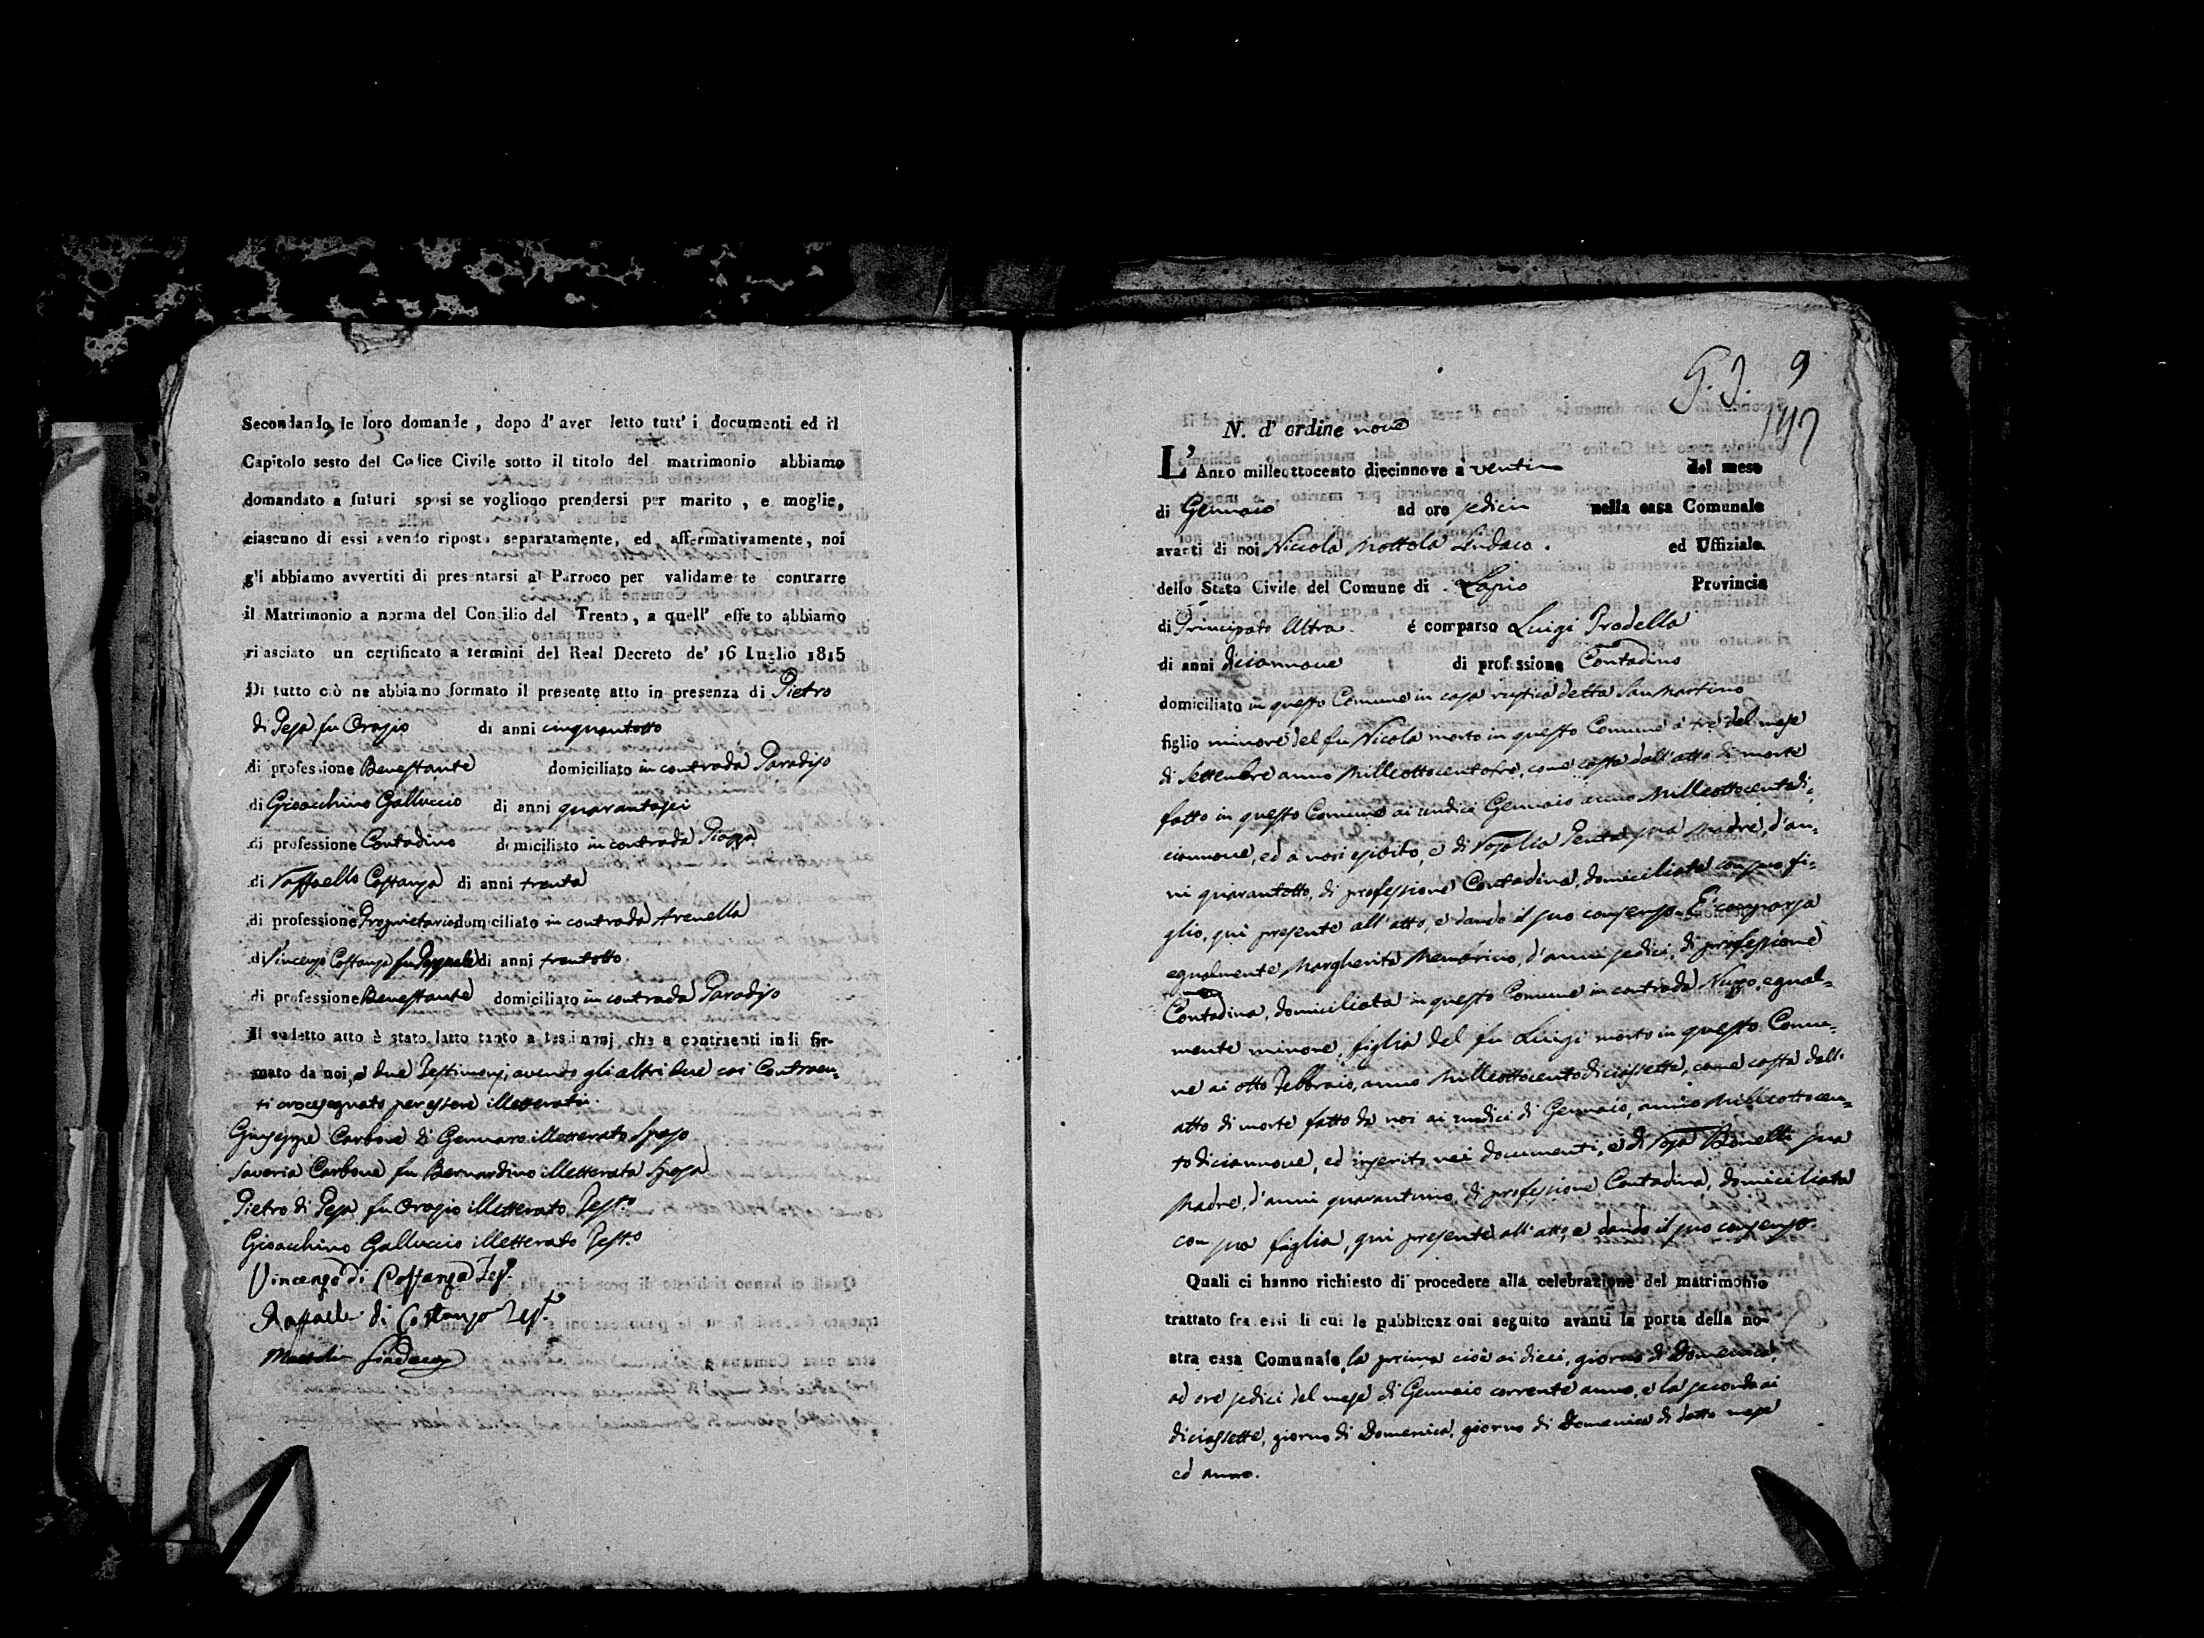 Secondando le loro domande, dopo d'aver letto tutt'i documenti ed il
Capitolo sesto del Codice Civile sotto il titolo del matrimonio abbiamo
domandato a futuri sposi se vogliono prendersi per marito, e moglie,
ciascuno di essi avendo riposto separatamente, ed affermativamente, noi
gli abbiamo avvertiti di presentarsi al Parroco per validamente contrarre
il Matrimonio a norma del Concilio del Trento, a quell' effetto abbiamo
rilasciato un certificato a termini del Real Decreto de' 16 Luglio 1815
Di tutto ciò ne abbiamo formato il presente atto in presenza di Pietro
di Pesa fu Orazio di anni cinquantotto
di professione Benestante domiciliato in contrada Paradiso
di Gioacchino Galluccio di anni quarantasei
di professione Contadino domiciliato in contrada Piazza
di Raffaello Costanza di anni trenta
di professione Proprietario domiciliato in contrada Arenella
di Vincenzo Costanza fu Pasquale di anni trentotto.
di professione Benestante domiciliato in contrada Paradiso
Il sudetto atto è stato letto tanto a testimonj che a contraenti indi fir-
mato da noi, e due Testimonj, avendo gli altri due coi Contraen-
ti crocesegnato per essere illetterati.
Giuseppe Carbone di Gennaro illetterato Sposo
Saveria Carbone fu Bernardino illetterata Sposa
Pietro di Pesa fu Orazio illetterato Test.o
Gioacchino Galluccio illetterato Test.o
Vincenzo di Costanza Tes.o
Raffaele di Costanzo Test.o
Sindaco
G. I. 9
N. d' ordine nove
L' Anno milleottocento diecinnove a venti del mese
di Gennaio ad ore sedici nella casa Comunale
avanti di noi Niccola Mottola Sindaco. ed Uffiziale
dello Stato Civile del Comune di Lapio Provincia
di Principato Ultra. é comparso Luigi Prodella
di anni diciannove di professione Contadino
domiciliato in questo Comune in casa rustica detta San Martino
figlio minore del fu Nicola morto in questo Comune a tre del mese
di Settembre anno Milleottocentotre, come costa dall'atto di morte
fatto in questo Comune ai undici Gennaio anno Milleottocentodi-
ciannove, ed a noi esibito, e di Rosalia Penta sua Madre, d'an-
ni quarantotto, di professione Contadina, domiciliata con suo fi-
glio, qui presente all'atto, e dando il suo consenso. E' comparsa
egualmente Margherita Membrino, d'anni sedici, di professione
Contadina, domiciliata in questo Comune in contrada Nuzzo, egual-
mente minore, figlia del fu Luigi morto in questo Comu-
ne ai otto Febbraio, anno Milleottocentodiciassette, come costa dall'
atto di morte fatto da noi ai undici di Gennaio, anno Milleottocen-
to diciannove, ed inserito nei documenti, e di Rosa Bonelli sua
Madre, d'anni quarantuno, di professione Contadina, domiciliata
con sua figlia, qui presente all'atto, e dando il suo consenso.
Quali ci hanno richiesto di procedere alla celebrazione del matrimonio
trattato fra essi di cui le pubblicazioni seguito avanti la porta della no-
stra casa Comunale, la prima cioè ai dieci, giorno di Domenica,
ad ore sedici del mese di Gennaio corrente anno, e la seconda ai
diciassette, giorno di Domenica, giorno di Domenica di detto mese
ed anno.